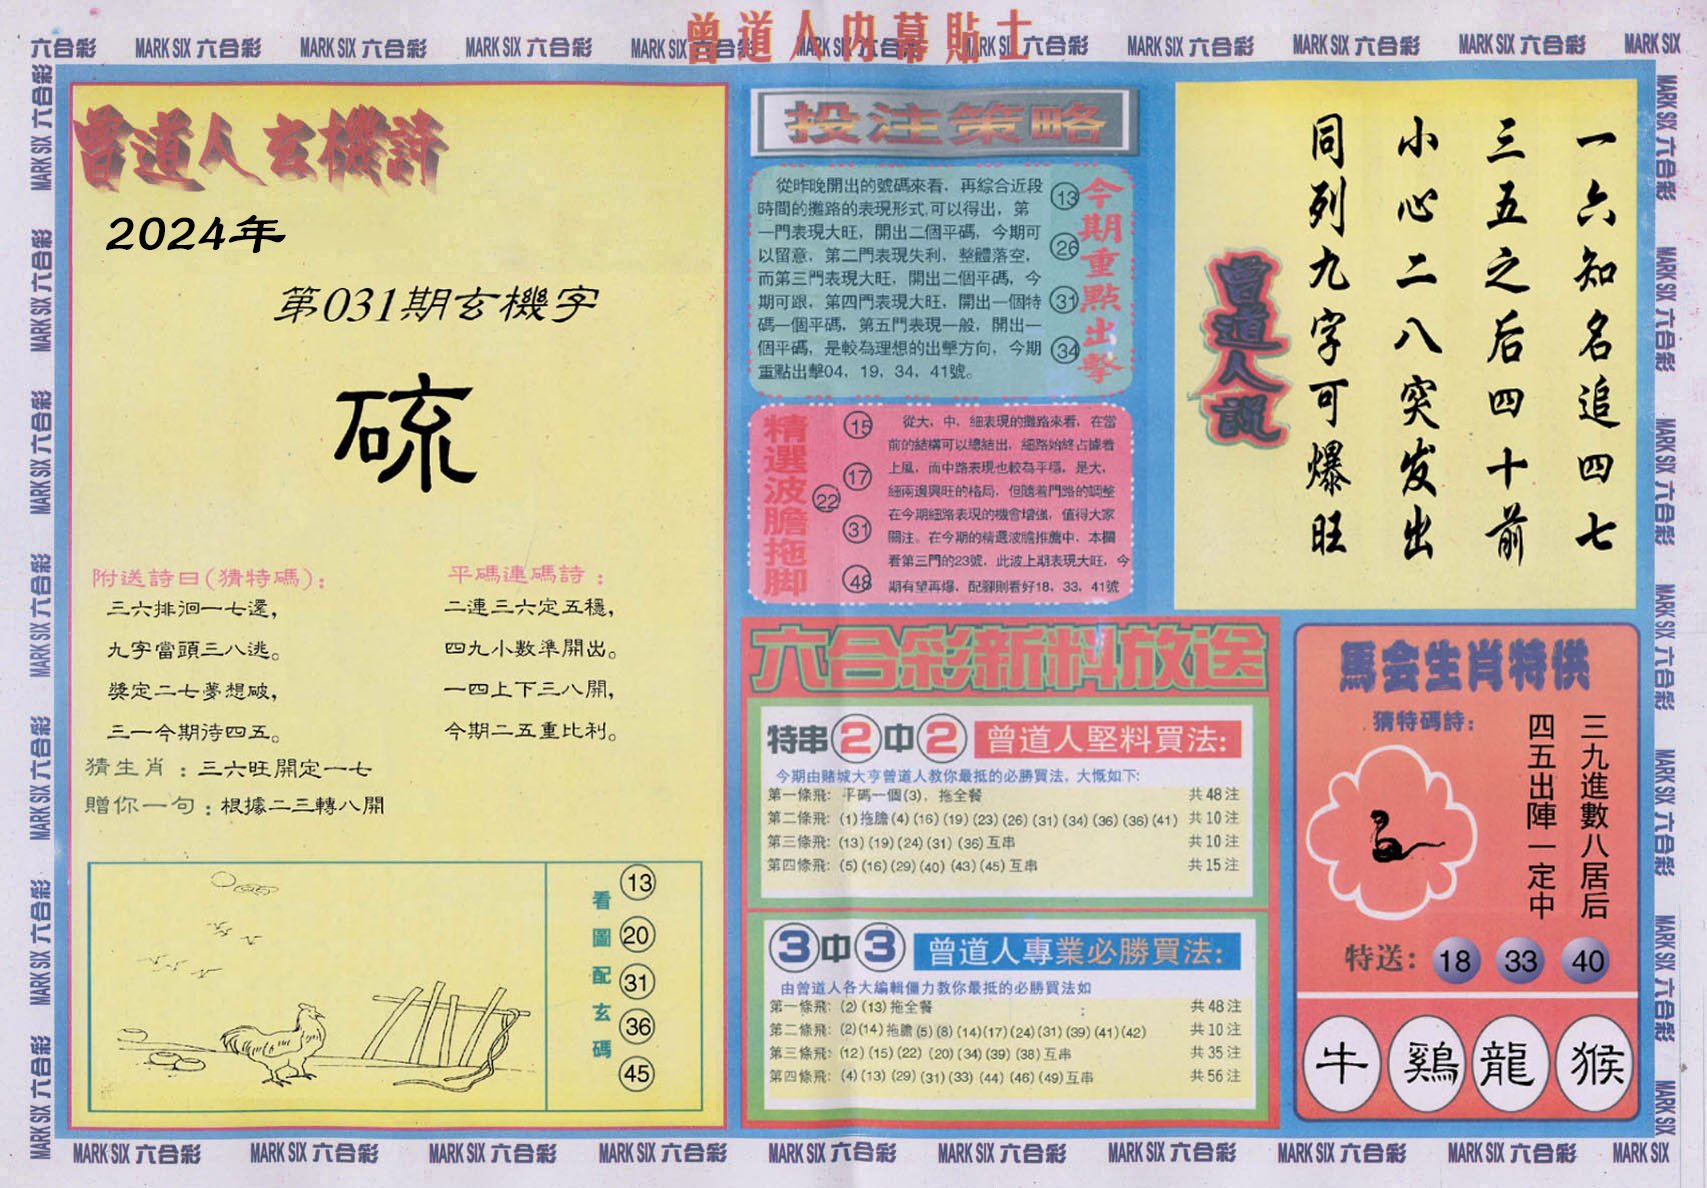 曾道人内幕貼士
六合彩 MARK SIX 六合彩 MARK SIX 六合彩 MARK SIX 六合彩 MARK SIX 六合彩 MARK SIX 六合彩 MARK SIX 六合彩 MARK SIX 六合彩 MARK SIX 六合彩 MARK SIX 六合彩 MARK SIX
曾道人玄機詩
2024年
第031期玄機字
硫
附送詩曰(猜特碼)：
三六排徊一七還，
九字當頭三八逃。
獎定二七夢想破，
三一今期待四五。
平碼連碼詩：
二連三六定五穩，
四九小數準開出。
一四上下三八開，
今期二五重比利。
猜生肖：三六旺開定一七
贈你一句：根據二三轉八開
看圖配玄碼
13
20
31
36
45
投注策略
從昨晚開出的號碼來看，再綜合近段
時間的攤路的表現形式,可以得出，第
一門表現大旺，開出二個平碼，今期可
以留意，第二門表現失利，整體落空，
而第三門表現大旺，開出二個平碼，今
期可跟，第四門表現大旺，開出一個特
碼一個平碼，第五門表現一般，開出一
個平碼，是較為理想的出擊方向，今期
重點出擊04，19，34，41號。
13
26
31
34
今期重點出擊
精選波膽拖脚
15
17
22
31
48
從大，中，細表現的攤路來看，在當
前的結構可以總結出，細路始終占據着
上風，而中路表現也較為平穩，是大，
細兩邊興旺的格局，但隨着門路的調整
在今期細路表現的機會增強，值得大家
關注。在今期的精選波膽推薦中，本欄
看第三門的23號，此波上期表現大旺，今
期有望再爆，配腳則看好18，33，41號
六合彩新料放送
特串2中2 曾道人堅料買法:
今期由賭城大亨曾道人教你最抵的必勝買法，大慨如下:
第一條飛: 平碼一個(3)，拖全餐 共48注
第二條飛: (1)拖膽(4)(16)(19)(23)(26)(31)(34)(36)(36)(41) 共10注
第三條飛: (13)(19)(24)(31)(36)互串 共10注
第四條飛: (5)(16)(29)(40)(43)(45)互串 共15注
3中3 曾道人專業必勝買法:
由曾道人各大編輯僵力教你最抵的必勝買法如
第一條飛: (2)(13)拖全餐 : 共48注
第二條飛: (2)(14)拖膽(5)(8)(14)(17)(24)(31)(39)(41)(42) 共10注
第三條飛: (12)(15)(22)(20)(34)(39)(38)互串 共35注
第四條飛: (4)(13)(29)(31)(33)(44)(46)(49)互串 共56注
一六知名追四七
三五之后四十前
小心二八突发出
同列九字可爆旺
曾道人說
馬会生肖特供
猜特碼詩：
三九進數八居后
四五出陣一定中
特送： 18 33 40
牛 鷄 龍 猴
MARK SIX 六合彩 MARK SIX 六合彩 MARK SIX 六合彩 MARK SIX 六合彩 MARK SIX 六合彩 MARK SIX 六合彩 MARK SIX 六合彩 MARK SIX 六合彩 MARK SIX 六合彩 MARK SIX